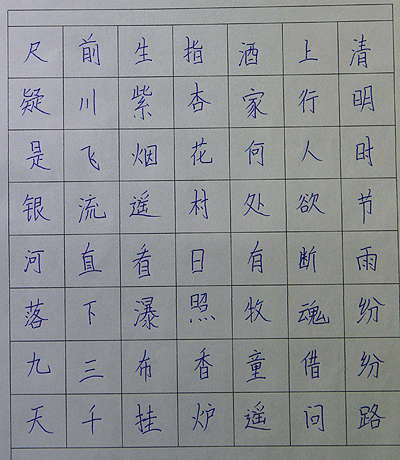 清明时节雨纷纷路
上行人欲断魂借问
酒家何处有牧童遥
指杏花村日照香炉
生紫烟遥看瀑布挂
前川飞流直下三千
尺疑是银河落九天